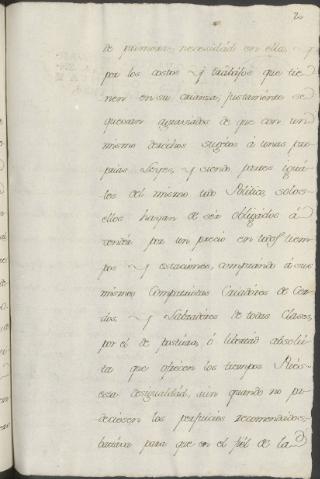 2
de primera necesidad en ellas, y
por los costos y trabajos que tie-
nen en su crianza, justamente se
quexan agraviados de que con un
mismo derecho sugetos á unas pro-
pias Leyes, y siendo partes igua-
les del mismo todo Politico, solos
ellos hayan de ser obligados á
vender por un precio en todos tiem-
pos y estaciones, comprando á sus
mismos Compatriotas Criadores de Cer-
dos y Labradores de todas Clases,
por el de postura, ó libertad absolu-
ta que ofrecen los tiempos
esta desigualdad, aun quando no pa-
deciesen los perjuicios recomendados,
bastára para que en el fiel de la